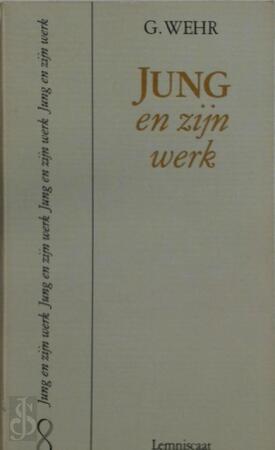 G. WEHR
JUNG
en zijn
werk
Jung en zijn werk Jung en zijn werk Jung en zijn werk Jung en zijn werk
Lemniscaat